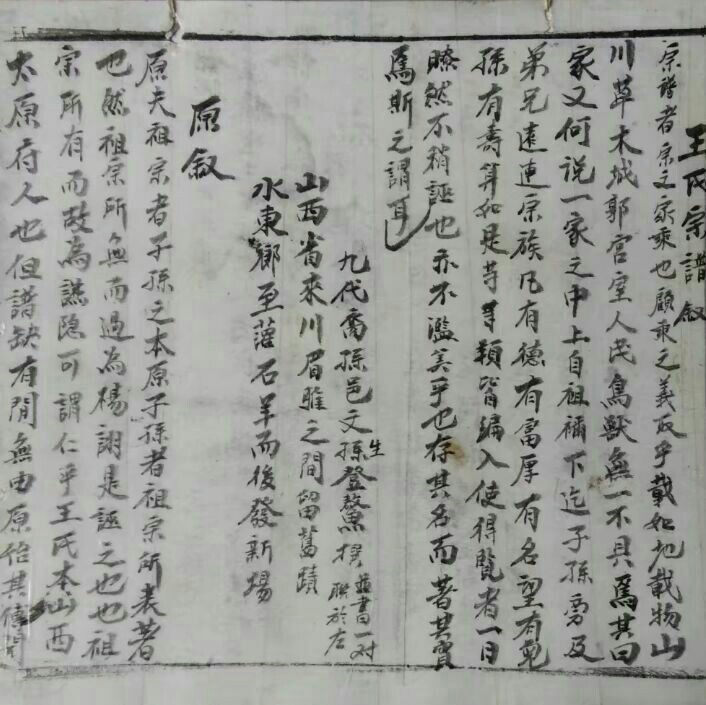 王氏宗譜叙
宗譜者宗之家乘也顧乘之義取乎載如地載物山
川草木城郭宮室人民鳥獸無一不具焉其曰
家又何說一家之中上自祖禰下迄子孫旁及
弟兄遠連宗族凡有德有富厚有名望有
孫有壽算如是等等類皆編入使得覽者一目
瞭然不稍誣也亦不濫美乎也存其名而著其實
焉斯之謂耳
九代裔孫邑文生孫登鰲撰並書一对聯於左
山西省來川眉雅之間留舊蹟
水東鄉至落石羊而後發新場
原叙
原夫祖宗者子孫之本原子孫者祖宗所表著
也然祖宗所無而過為揚謝是誣之也也祖
宗所有而故為譩隐可謂仁乎王氏本山西
太原府人也但譜缺有間無由原始其傳聞